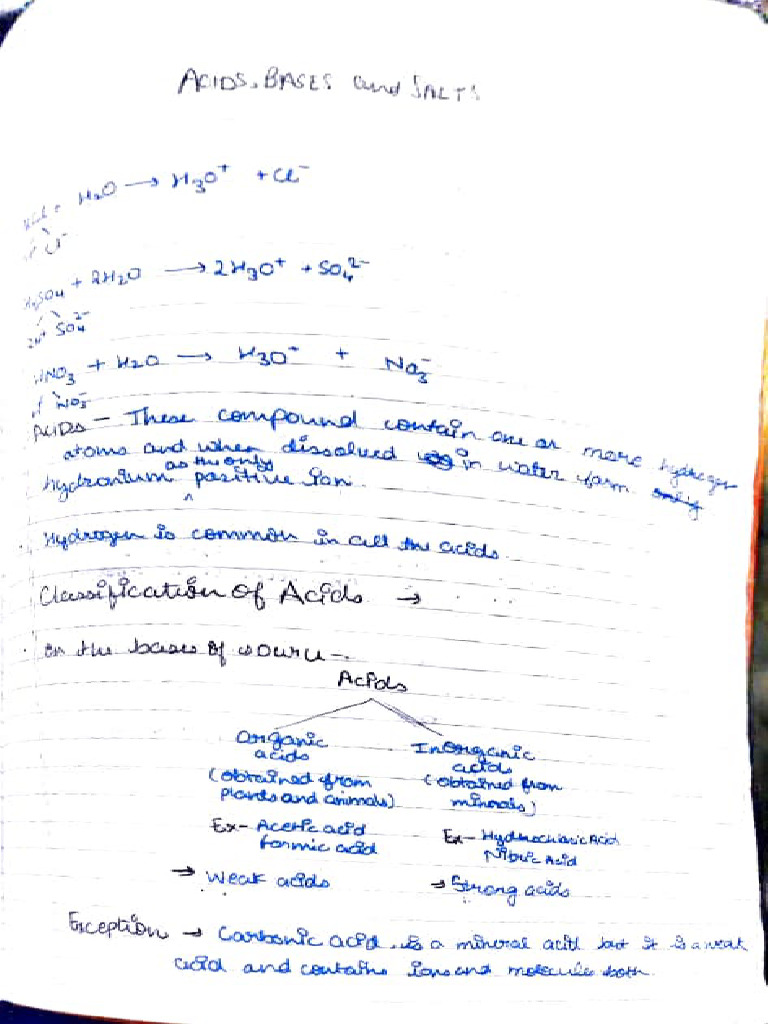 ACIDS, BASES and SALTS
HCl + H2O → H3O+ + Cl-
H+ Cl-
H2SO4 + 2H2O → 2H3O+ + SO4 2-
2H+ SO4 2-
HNO3 + H2O → H3O+ + NO3-
H+ NO3-
ACIDS - These compound contain one or more hydrogen
atoms and when dissolved in water form only
as the only
hydronium ^ positive ion.
Hydrogen is common in all the acids.
Classification of Acids →
on the bases of source -
Acids
organic acids
(obtained from plants and animals)
Ex- Acetic acid
formic acid
→ Weak acids
Inorganic acids
(obtained from minerals)
Ex- Hydrochloric Acid
Nitric Acid
→ Strong acids
Exception → Carbonic acid is a mineral acid but it is a weak
acid and contains ions and molecule both.